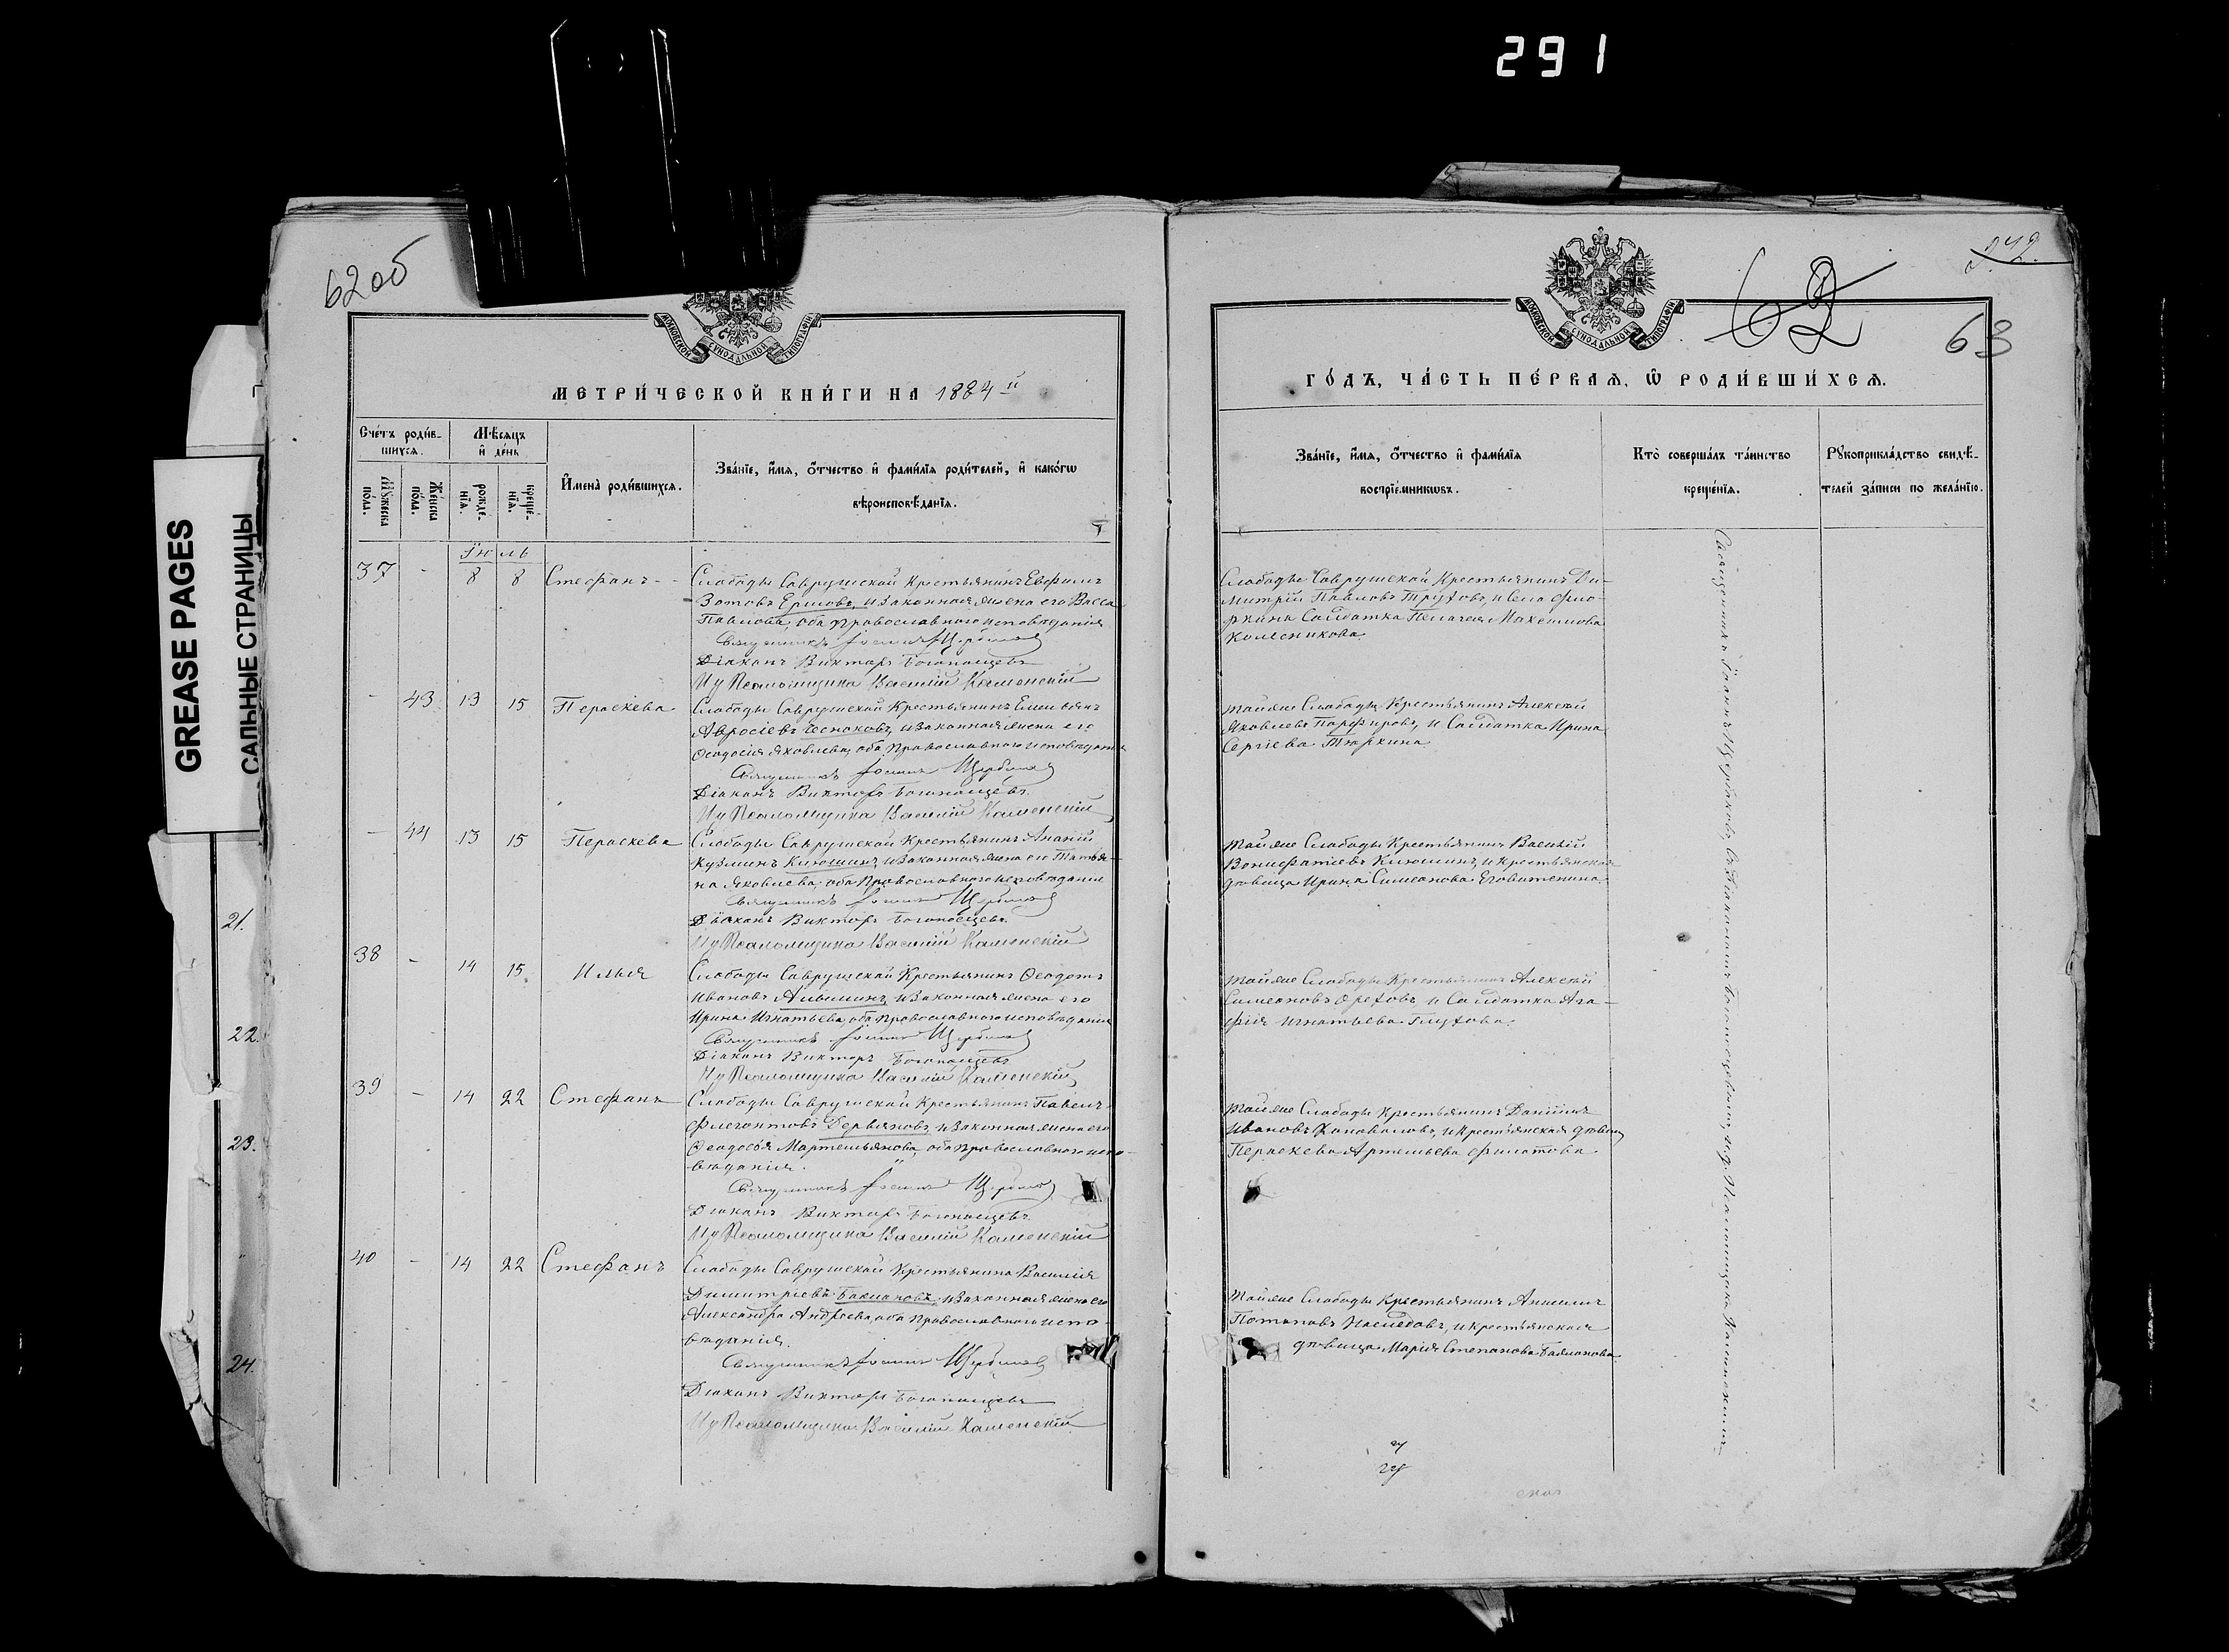 291
62об
МОСКОВСКОЙ СѴНОДАЛЬНОЙ ТИПОГРАФІИ
МЕТРИ́ЧЕСКОЙ КНИ́ГИ НА 1884 й
Сче́тъ роди́в-
шихсѧ.
Мѣ́сѧцъ
и҆ де́нь
Мꙋ́жеска
по́ла.
Же́нска
по́ла.
рожде-
нїѧ.
креще́-
нїѧ.
И҆мена̀ роди́вшихсѧ.
Зва́нїе, и҆́мѧ, о҆́тчество и҆ фами́лїѧ роди́телей, и҆ како́гѡ
вѣроисповѣ́данїѧ.
Іюль
37 - 8 8 Стефанъ
Слободы Саврушской Крестьянинъ Евфимъ
Зотовъ Ершовъ, и Законная жена его Васса
Павлова, оба Православнаго исповѣданія
Священникъ Іоаннъ Щербаков
Діаконъ Викторъ Богоносцевъ
И д Псаломщика Василій Каменскій
- 43 13 15 Параскева
Слободы Саврушской Крестьянинъ Емельянъ
Авросіевъ Чесноковъ, и Законная жена его
Ѳеодосія Яковлева, оба Православнаго исповѣданія
Священникъ Іоаннъ Щербаков
Діаконъ Викторъ Богоносцевъ
И д Псаломщика Василій Каменскій
- 44 13 15 Параскева
Слободы Саврушской Крестьянинъ Ананій
Кузминъ Клюшинъ, и Законная жена его Татья-
на Яковлева, оба Православнаго исповѣданія
Священникъ Іоаннъ Щербаков
Діаконъ Викторъ Богоносцевъ
И д Псаломщика Василій Каменскій
38 - 14 15 Илья
Слободы Саврушской Крестьянинъ Ѳеодотъ
Ивановъ Альшинъ, и Законная жена его
Ирина Игнатьева, оба Православнаго исповѣданія
Священникъ Іоаннъ Щербаков
Діаконъ Викторъ Богоносцевъ
И д Псаломщика Василій Каменскій
39 - 14 22 Стефанъ
Слободы Саврушской Крестьянинъ Павелъ
Флегонтовъ Дерьяновъ, и Законная жена его
Ѳеодосья Мартемьянова, оба Православнаго испо-
вѣданія.
Священникъ Іоаннъ Щербаков
Діаконъ Викторъ Богоносцевъ
И д Псаломщика Василій Каменскій
40 - 14 22 Стефанъ
Слободы Саврушской Крестьянина Василія
Димитріева Баландова, и Законная жена его
Александра Андреева, оба Православнаго испо-
вѣданія.
Священникъ Іоаннъ Щербаков
Діаконъ Викторъ Богоносцевъ
И д Псаломщика Василій Каменскій
GREASE PAGES
САЛЬНЫЕ СТРАНИЦЫ
21.
22.
23.
24.
62
63
МОСКОВСКОЙ СѴНОДАЛЬНОЙ ТИПОГРАФІИ
ГО́ДЪ, ЧА́СТЬ ПЕ́РВАѦ, Ѡ҆ РОДИ́ВШИХСѦ.
Зва́нїе, и҆́мѧ, о҆́тчество и҆ фами́лїѧ
воспрїе́мникѡвъ.
Кто̀ соверша́лъ та́инство
креще́нїѧ.
Рꙋкоприкла́дство свидѣ́-
телей за́писи по жела́нїю.
Слободы Саврушской Крестьянинъ Ди-
митрій Павловъ Труховъ, и Села
Солдатка Пелагея Максимова
Колесникова.
Тойже Слободы Крестьянинъ Алексей
Яковлевъ Парфировъ, и Солдатка Ирина
Сергіева Тюркина
Тойже Слободы Крестьянинъ Василій
Вонифатіевъ Клюшинъ, и крестьянская
дѣвица Ирина Симеонова
Тойже Слободы Крестьянинъ Алексей
Симеоновъ Ореховъ, и Солдатка Ага-
фія Игнатьева Глухова.
Тойже Слободы Крестьянинъ Даніилъ
Ивановъ Коноваловъ, и Крестьянская дѣвица
Параскева Артемьева Филатова.
Тойже Слободы Крестьянинъ
Потаповъ и крестьянская
дѣвица Марія Степанова Баландова
Священникъ Іоаннъ Щербаковъ, съ Діакономъ Богоносцевымъ, и. д. Псаломщика Каменскимъ